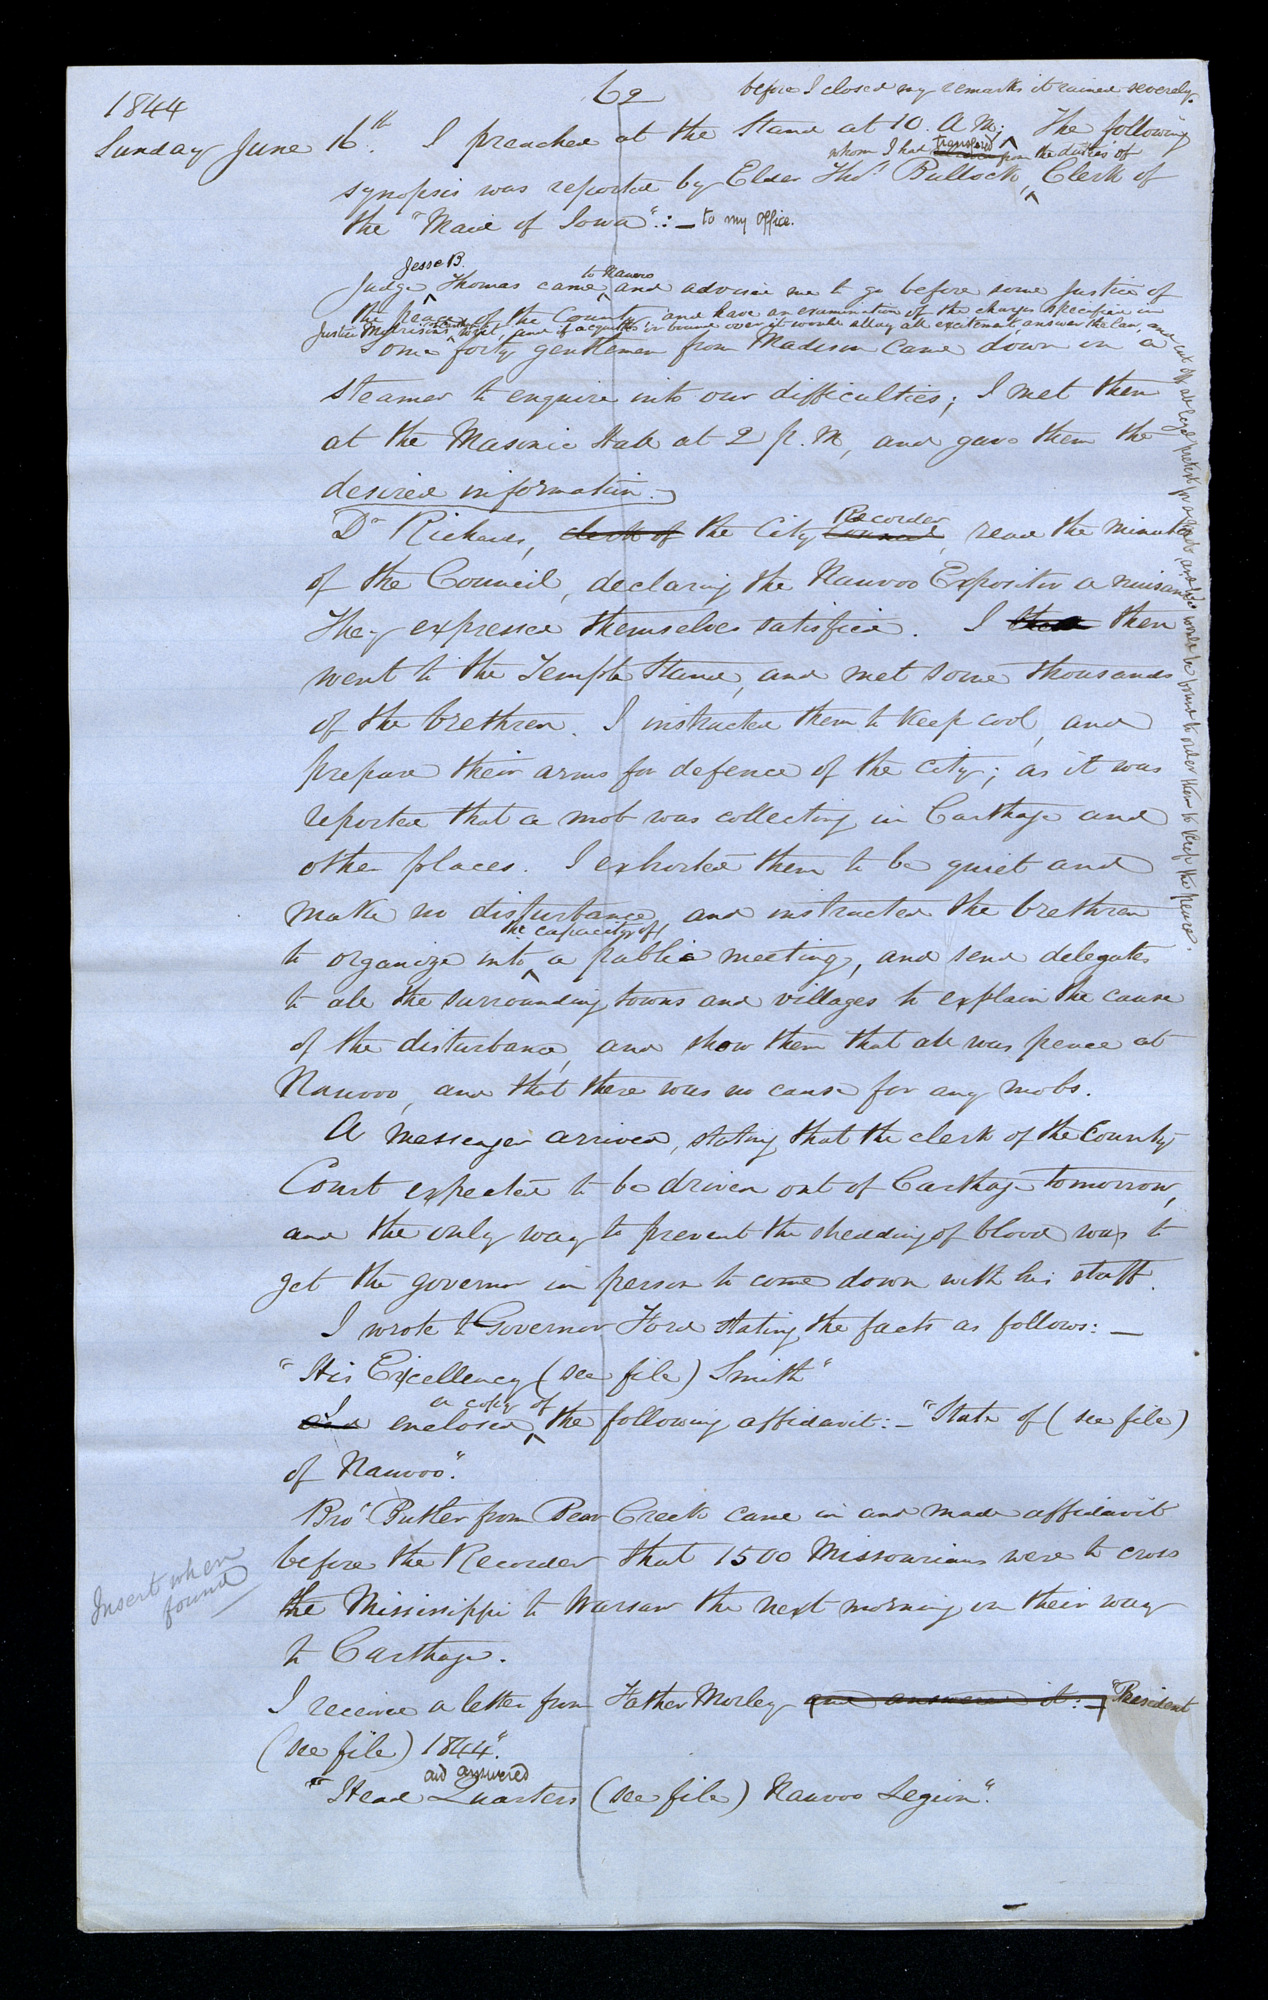 62
before I closed my remarks it rained severely.
1844
Sunday June 16th. I preached at the Stand at 10. A M; The following
whom I had transferred from the duties of
synopsis was reported by Elder Thos. Bullock, Clerk of
the "Maid of Iowa":— to my office.
Jesse B. to Nauvoo
Judge Thomas came and advised me to go before some justice of
the peace of the County, and have an examination of the charges specified in
Justice Morrison's writ, and if acquitted or bound over it would allay all excitement, answer the law, and
cut off all legal pretext for a mob, and he would be bound to order them to keep the peace.
Some forty gentlemen from Madison came down on a
steamer to enquire into our difficulties; I met them
at the Masonic Hall at 2 p. M, and gave them the
desired information.
Recorder
Dr Richards, clerk of the City Council, read the minutes
of the Council, declaring the Nauvoo Expositor a nuisance
They expressed themselves satisfied. I then
went to the Temple Stand, and met some thousands
of the brethren. I instructed them to keep cool, and
prepare their arms for defence of the city; as it was
reported that a mob was collecting in Carthage and
other places. I exhorted them to be quiet and
make no disturbance, and instructed the brethren
the capacity of
to organize into a public meeting, and send delegates
to all the surrounding towns and villages to explain the cause
of the disturbance, and show them that all was peace at
Nauvoo, and that there was no cause for any mobs.
A messenger arrived, stating that the clerk of the County
Court expected to be driven out of Carthage tomorrow,
and the only way to prevent the shedding of blood was to
get the governor in person to come down with his staff.
I wrote to Governor Ford stating the facts as follows:—
"His Excellency (see file) Smith"
I a copy of
and enclosed the following affidavit:— "State of (see file)
of Nauvoo."
Bro. Butler from Bear Creek came in and made affidavit
before the Recorder that 1500 Missourians were to cross
the Mississippi to Warsaw the next morning on their way
to Carthage.
Insert when
found
I received a letter from Father Morley and answered it:— "President
(see file) 1844".
and answered
"Head Quarters (see file) Nauvoo Legion."